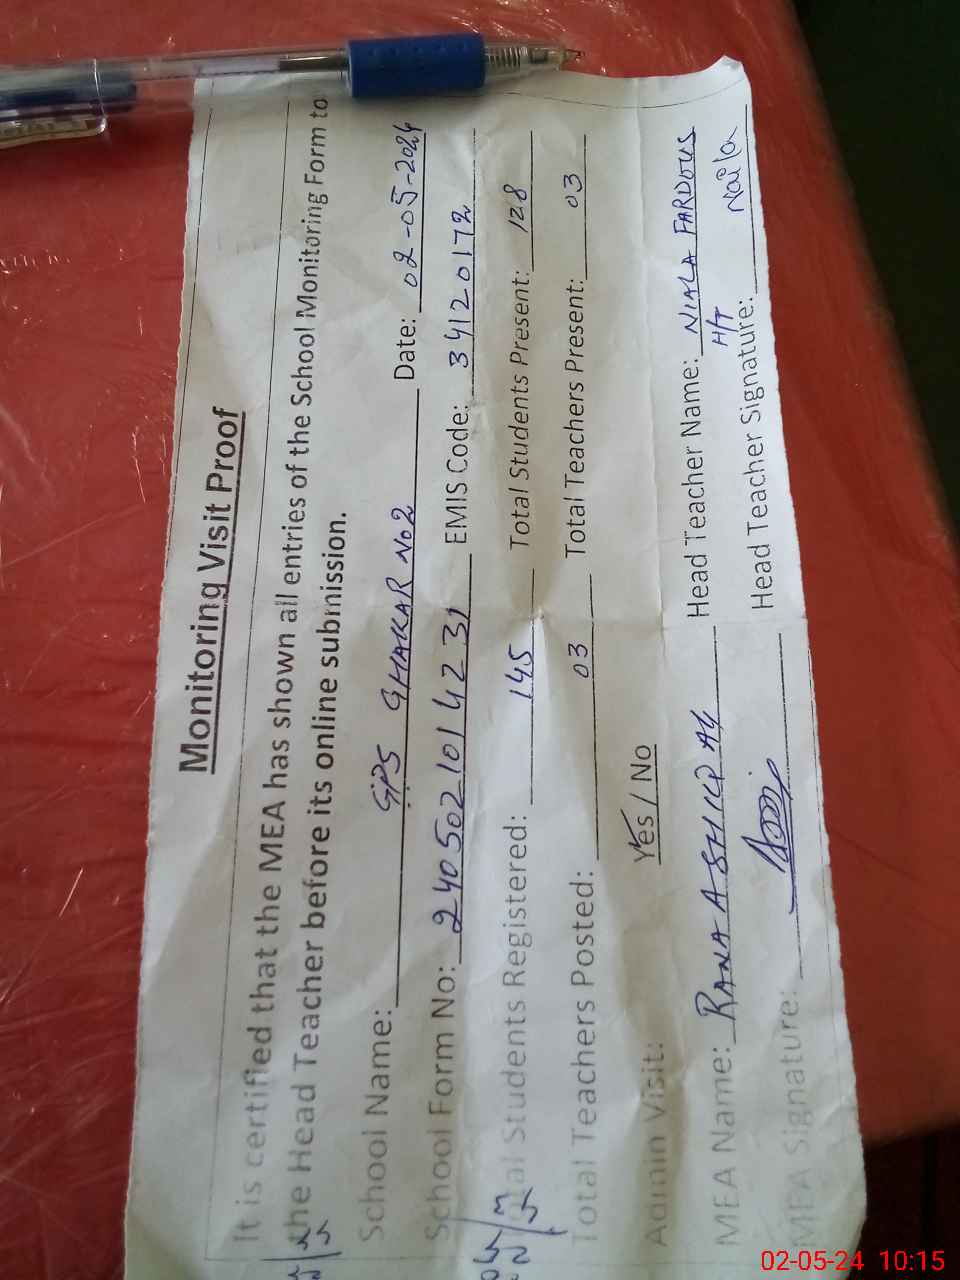 Monitoring Visit Proof
It is certified that the MEA has shown all entries of the School Monitoring Form to
the Head Teacher before its online submission.
School Name: GPS GHAKAR No 2 Date: 02-05-2024
School Form No: 2405021014231 EMIS Code: 34120172
Total Students Registered: 145 Total Students Present: 128
Total Teachers Posted: 03 Total Teachers Present: 03
Admin Visit: Yes / No
MEA Name: RANA ASHIQ Head Teacher Name: NIALA FARDOUS
H/T
MEA Signature: Head Teacher Signature: Naila
02-05-24 10:15